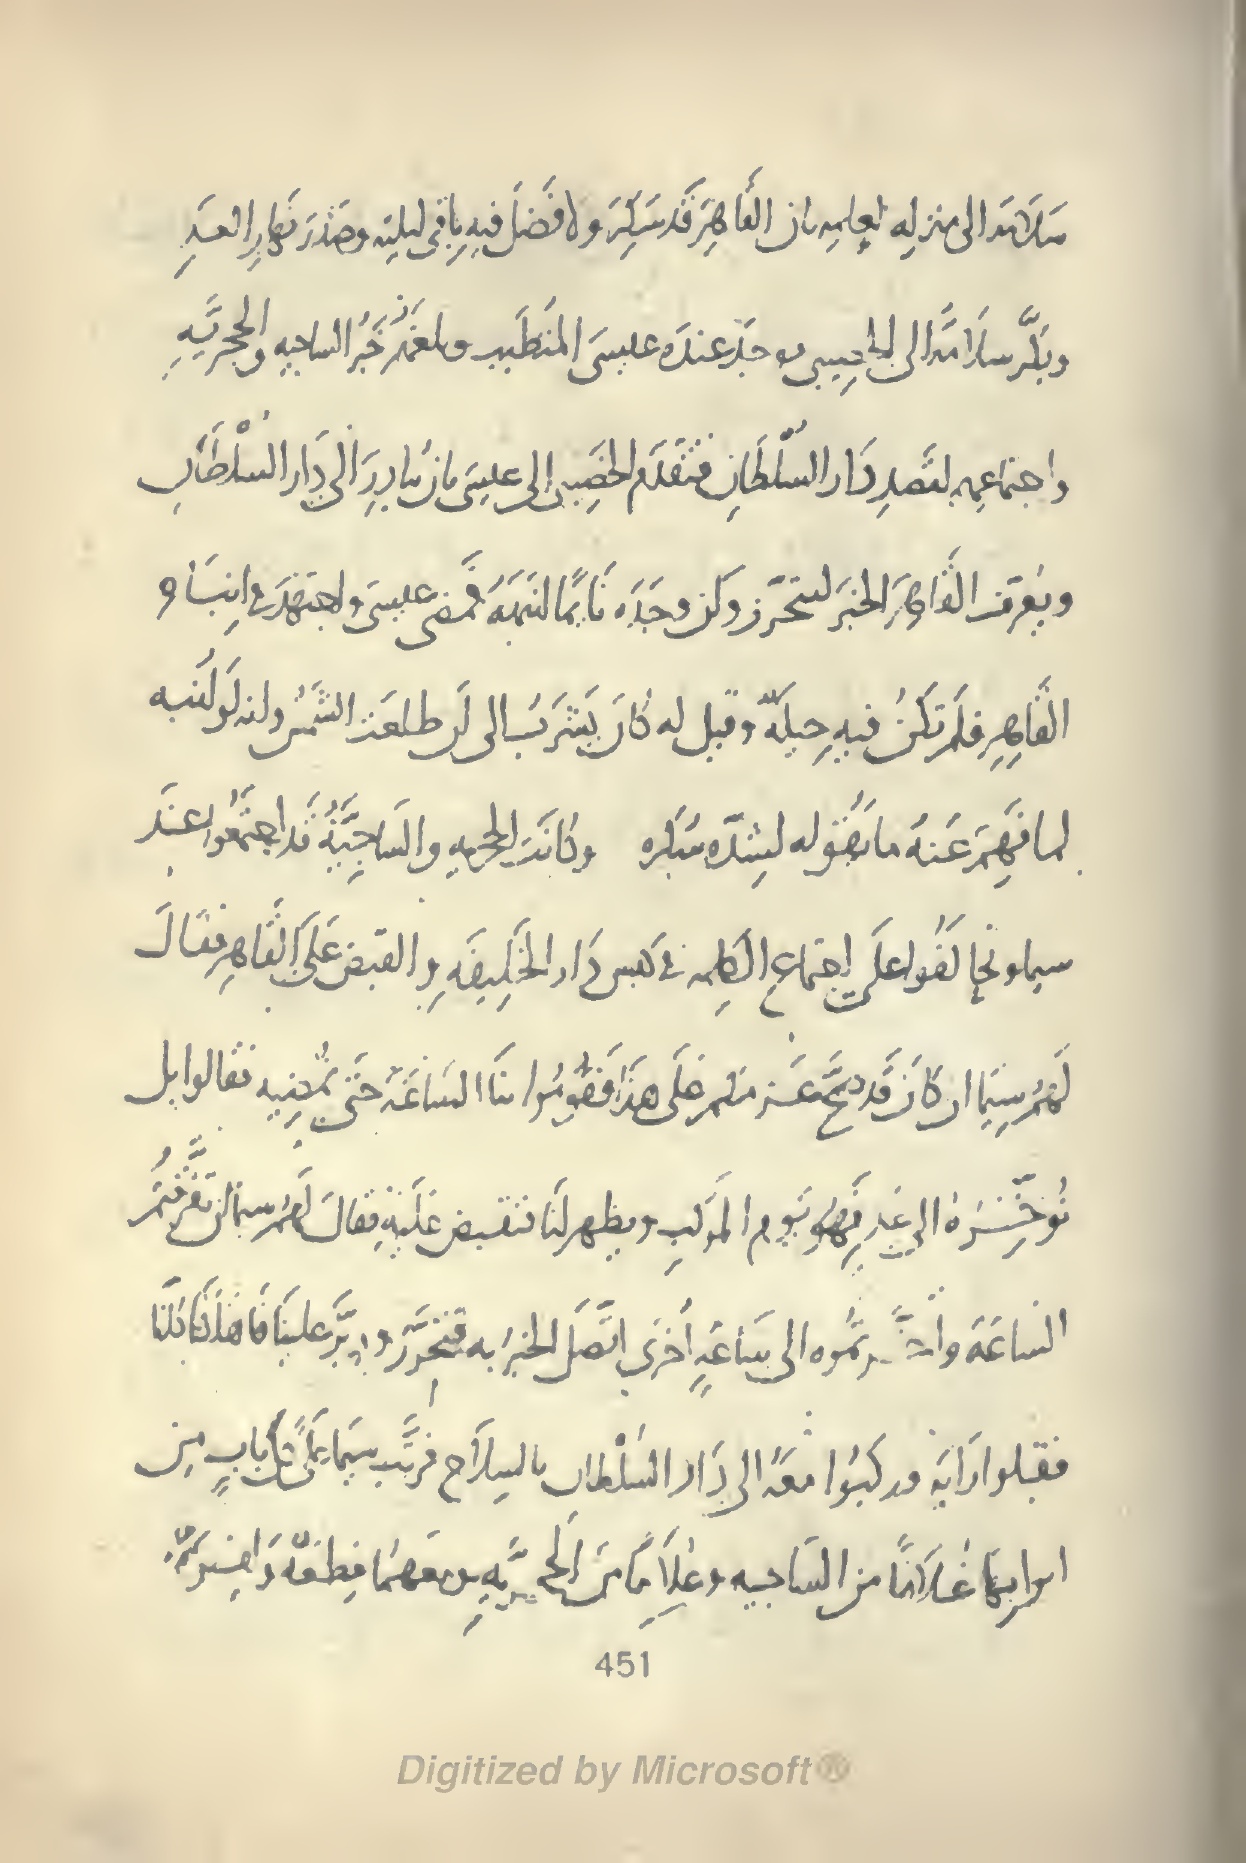 سلامة الى منزله يعلمه بان القاهر قد سكر ولا فضل فيه باقى ليلته وصدر نهار الغد
وبكّر سلامة الى الخصيبى ووجد عنده عيسى المتطبب وبلغهم خبر الساجيه والحجريّه
واجتماعهم لقصد دار السلطان فتقدم الخصيبى الى عيسى بان يبادر الى دار السلطان
ويعرّف القاهر الخبر ليتحرّز وان وجده نايما انبهه فمضى عيسى واجتهد فى انباه
القاهر فلم تكن فيه حيلة وقيل له كان يشرب الى ان طلعت الشمس وانه لو انبه
لما فهم عنه ما يقوله لشدّه سكره وكانت الحجريه والساجيّة قد اجتمعوا عند
سيما وتحالفوا على اجتماع الكلمه فى كبس دار الخليفه والقبض على القاهر فقال
لهم سيما ان كان قد صحّ عزمكم على هذا فقوموا بنا الساعة حتى نمضيه فقالوا بل
نؤخّره الى غد فهو يوم الموكب ويظهر لنا فنقبض عليه فقال لهم سيما ان تفرّقتم
الساعة واخّرتموه الى ساعة اخرى اتّصل الخبر به فتحرّز ودبّر علينا فاهلكنا كلّنا
فقبلوا رايه وركبوا معه الى دار السلطان بالسلاح فرتّب سيما على كل باب من
ابوابها غلاما من الساجيه وغلاما من الحجريّه ومعهما قطعة وافرة
451
Digitized by Microsoft®